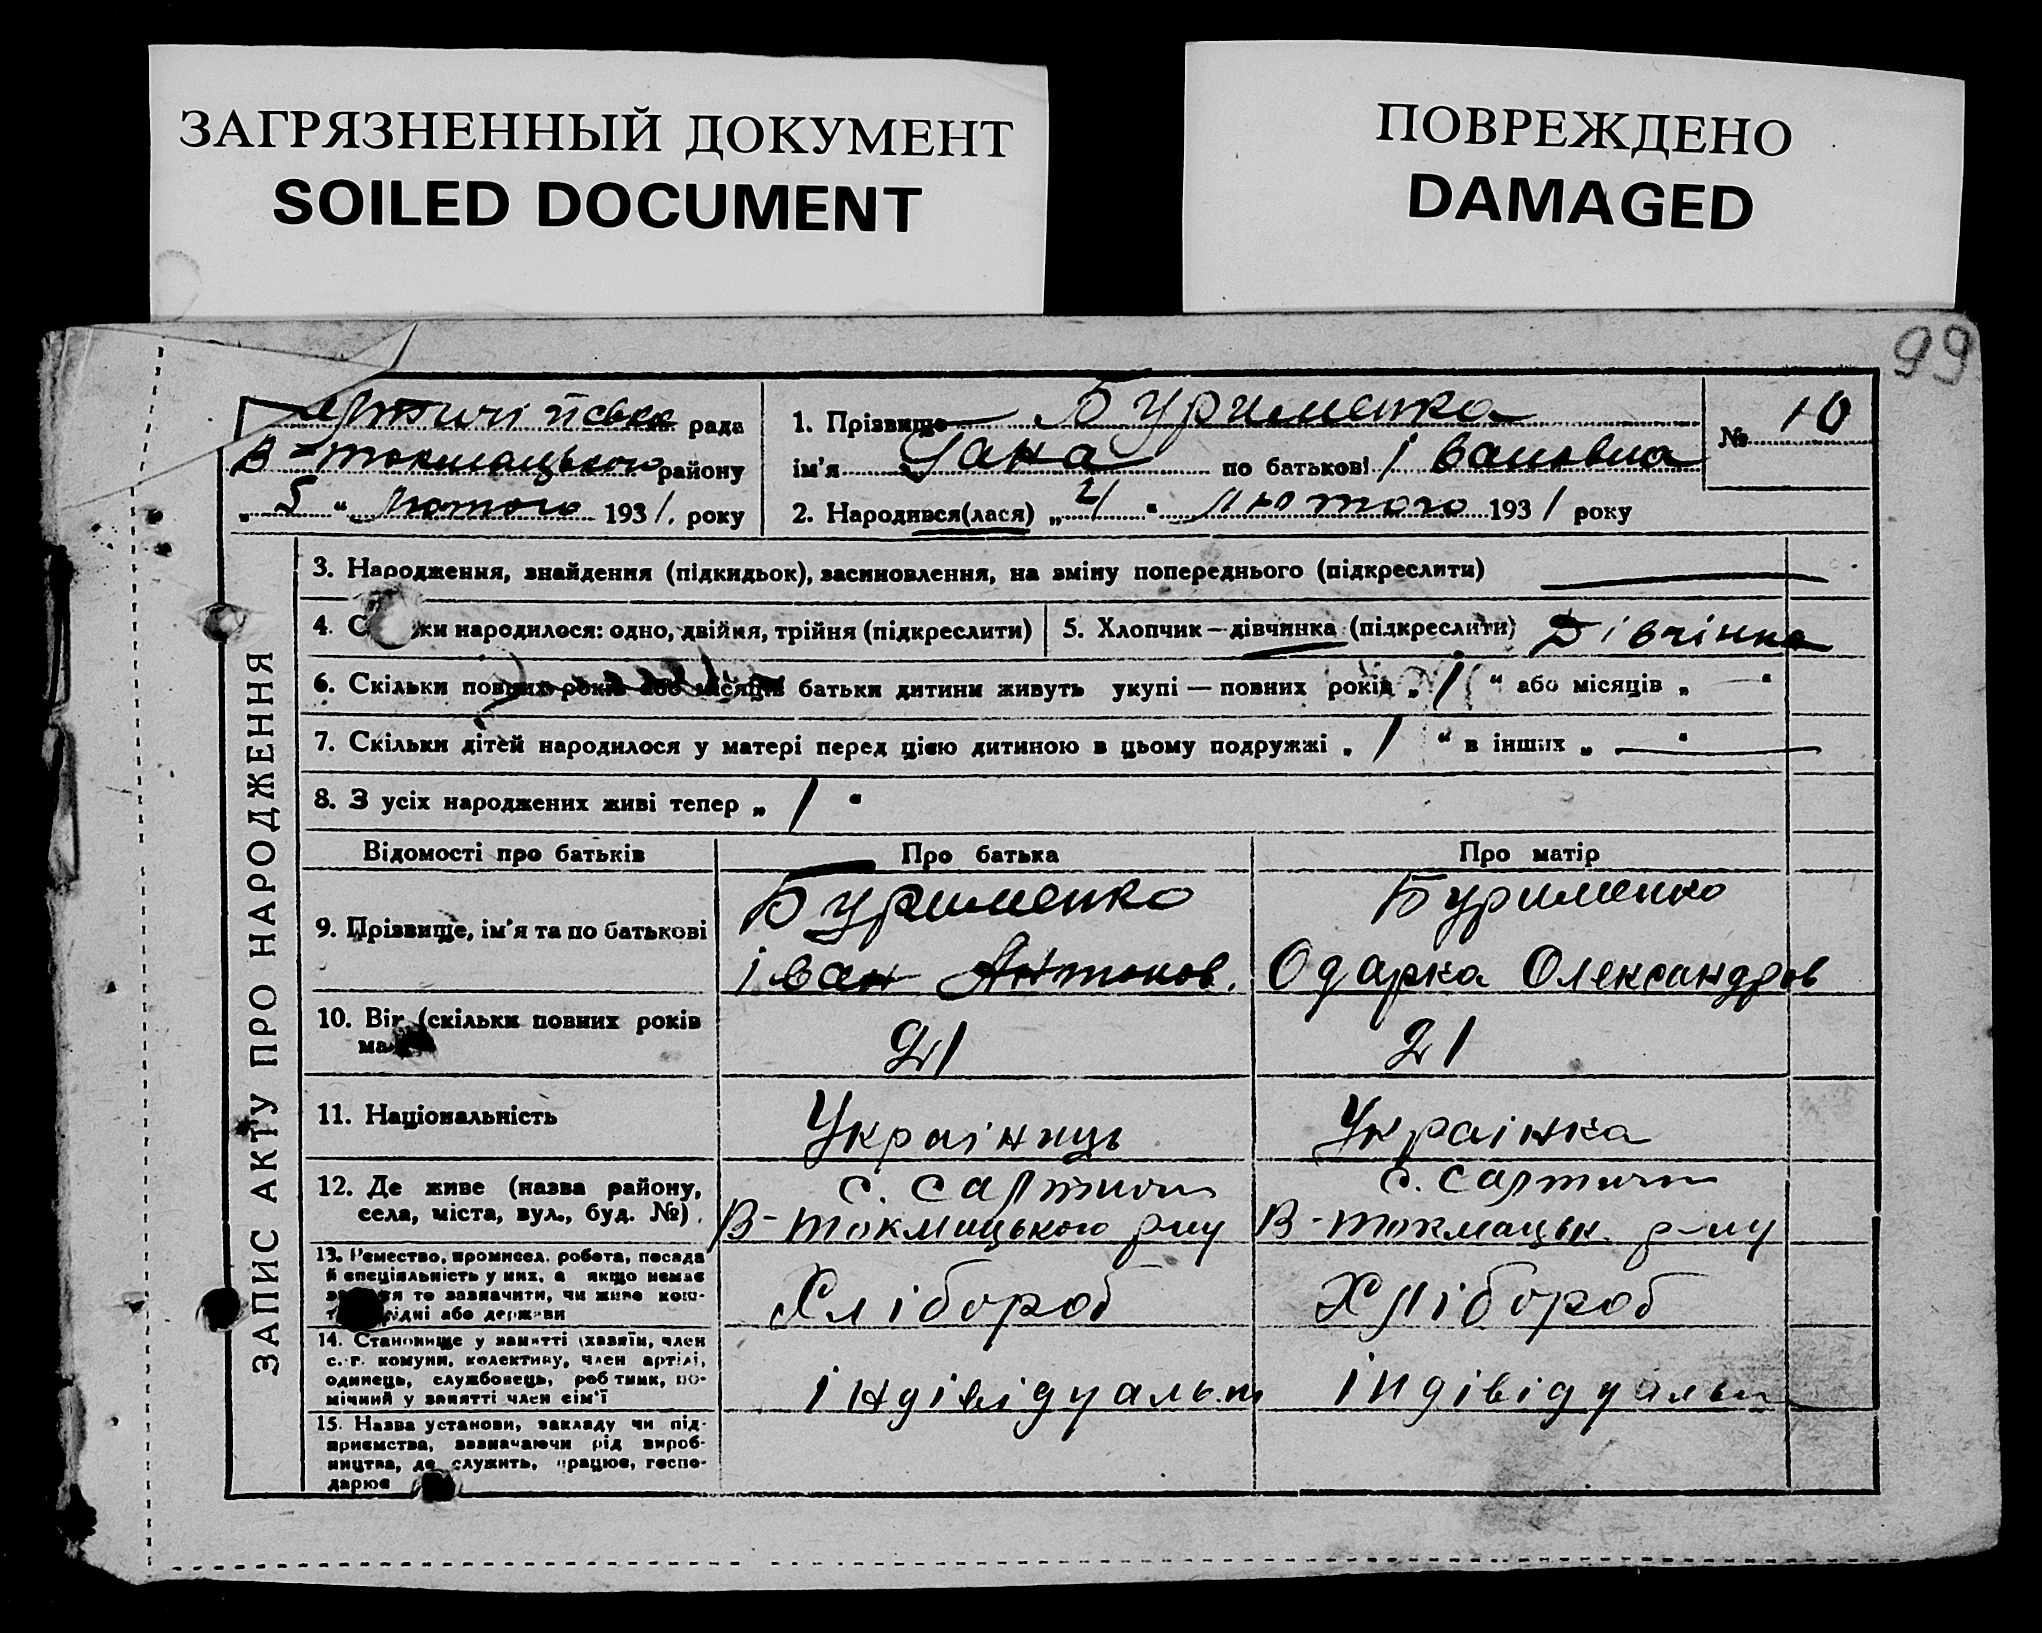 ЗАГРЯЗНЕННЫЙ ДОКУМЕНТ
SOILED DOCUMENT
ПОВРЕЖДЕНО
DAMAGED
99
рада
В-токмацького району
„ 5 “ лютого 1931. року
1. Прізвище Бурименко
ім'я по батькові Івановна
2. Народився(лася) „ “ лютого 1931 року
№ 10
ЗАПИС АКТУ ПРО НАРОДЖЕННЯ
3. Народження, знайдення (підкидьок), засиновлення, на зміну попереднього (підкреслити)
4. народилося: одно, двійня, трійня (підкреслити)
5. Хлопчик — дівчинка (підкреслити) Дівчінка
6. Скільки повних років або місяців батьки дитини живуть укупі — повних років „ 1 “ або місяців „ — “
7. Скільки дітей народилося у матері перед цією дитиною в цьому подружжі „ 1 “ в інших „ — “
8. З усіх народжених живі тепер „ 1 “
Відомості про батьків
Про батька
Про матір
9. Прізвище, ім'я та по батькові
Бурименко
Іван Антонов.
Бурименко
Одарка Олександров
10. Вік (скільки повних років
21
21
11. Національність
Украіниць
Украінка
12. Де живе (назва району,
села, міста, вул., буд. №)
с. Сартичи
В-токмацького р-ну
с. Сартичи
В-токмацьк. р-ну
13. Ремество, промисел, робота, посада
й спеціяльність у них, а якщо немає
то зазначити, чи живе кош-
рідні або держави
Хлібороб
Хлібороб
14. Становище у занятті (хазяїн, член
с.-г. комуни, колективу, член артілі,
одинець, службовець, робітник, по-
мічний у занятті член сім'ї
індівідуальн
індівідуальн
15. Назва установи, закладу чи під-
приємства, зазначаючи рід вироб-
ництва, де служить, працює, госпо-
дарює